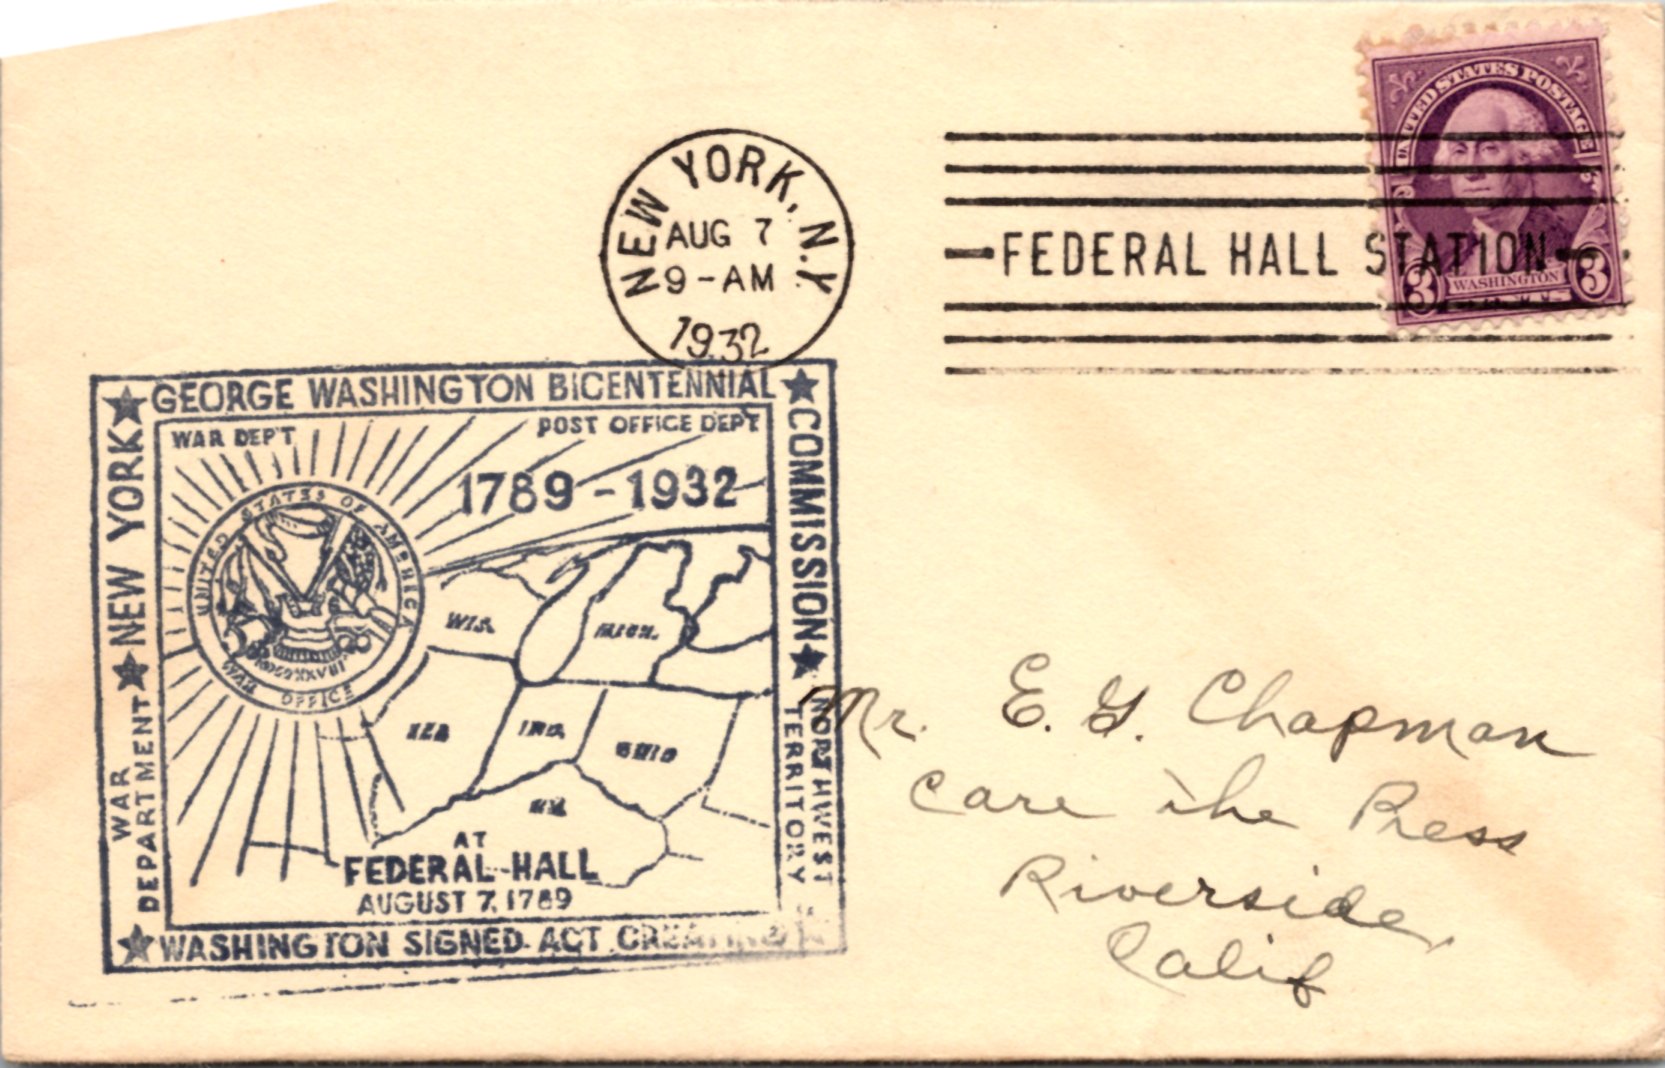 UNITED STATES POSTAGE
3 WASHINGTON 3
NEW YORK, N.Y.
AUG 7
9-AM
1932
FEDERAL HALL STATION
★ GEORGE WASHINGTON BICENTENNIAL ★
COMMISSION ★
★ NEW YORK ★
WAR DEP'T
POST OFFICE DEPT
1789-1932
UNITED STATES OF AMERICA
WAR OFFICE
WIS.
MICH.
ILL
IND.
OHIO
KY.
WAR
DEPARTMENT
NORTHWEST
TERRITORY
AT
FEDERAL HALL
AUGUST 7, 1789
★ WASHINGTON SIGNED ACT CREATING
Mr. E. G. Chapman
Care the Press
Riverside,
Calif